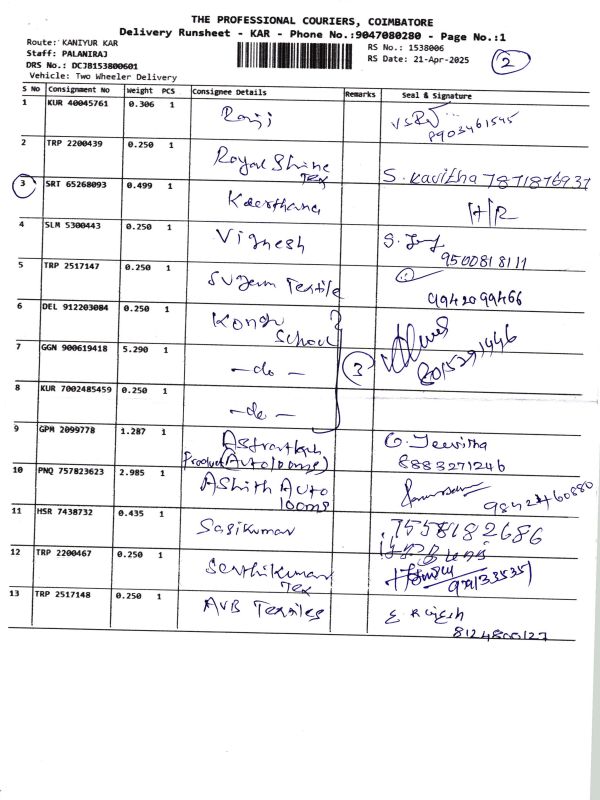 THE PROFESSIONAL COURIERS, COIMBATORE
Delivery Runsheet - KAR - Phone No.:9047080280 - Page No.:1
Route: KANIYUR KAR
RS No.: 1538006
Staff: PALANIRAJ
RS Date: 21-Apr-2025
2
DRS No.: DCJ8153800601
Vehicle: Two Wheeler Delivery
S No Consignment No Weight PCS Consignee Details Remarks Seal & Signature
1 KUR 40045761 0.306 1 Raji
8903461545
2 TRP 2200439 0.250 1 Royal Shine Tex S. Kavitha 7871876937
3 SRT 65268093 0.499 1 Keerthana H/R
4 SLM 5300443 0.250 1 Vignesh S.
9500818111
5 TRP 2517147 0.250 1 Textile
9942099466
6 DEL 912203084 0.250 1 Kongu School
7 GGN 900619418 5.290 1 -do- 3 8015291446
8 KUR 7002485459 0.250 1 -do-
9 GPM 2099778 1.287 1 Product (Autolooms) G. Jeevitha
8883271246
10 PNQ 757823623 2.985 1 Ashith Auto looms
11 HSR 7438732 0.435 1 Sasikumar 7558182686
12 TRP 2200467 0.250 1 Senthikumar Tex
13 TRP 2517148 0.250 1 AVB Textiles E. Rajesh
8124800127